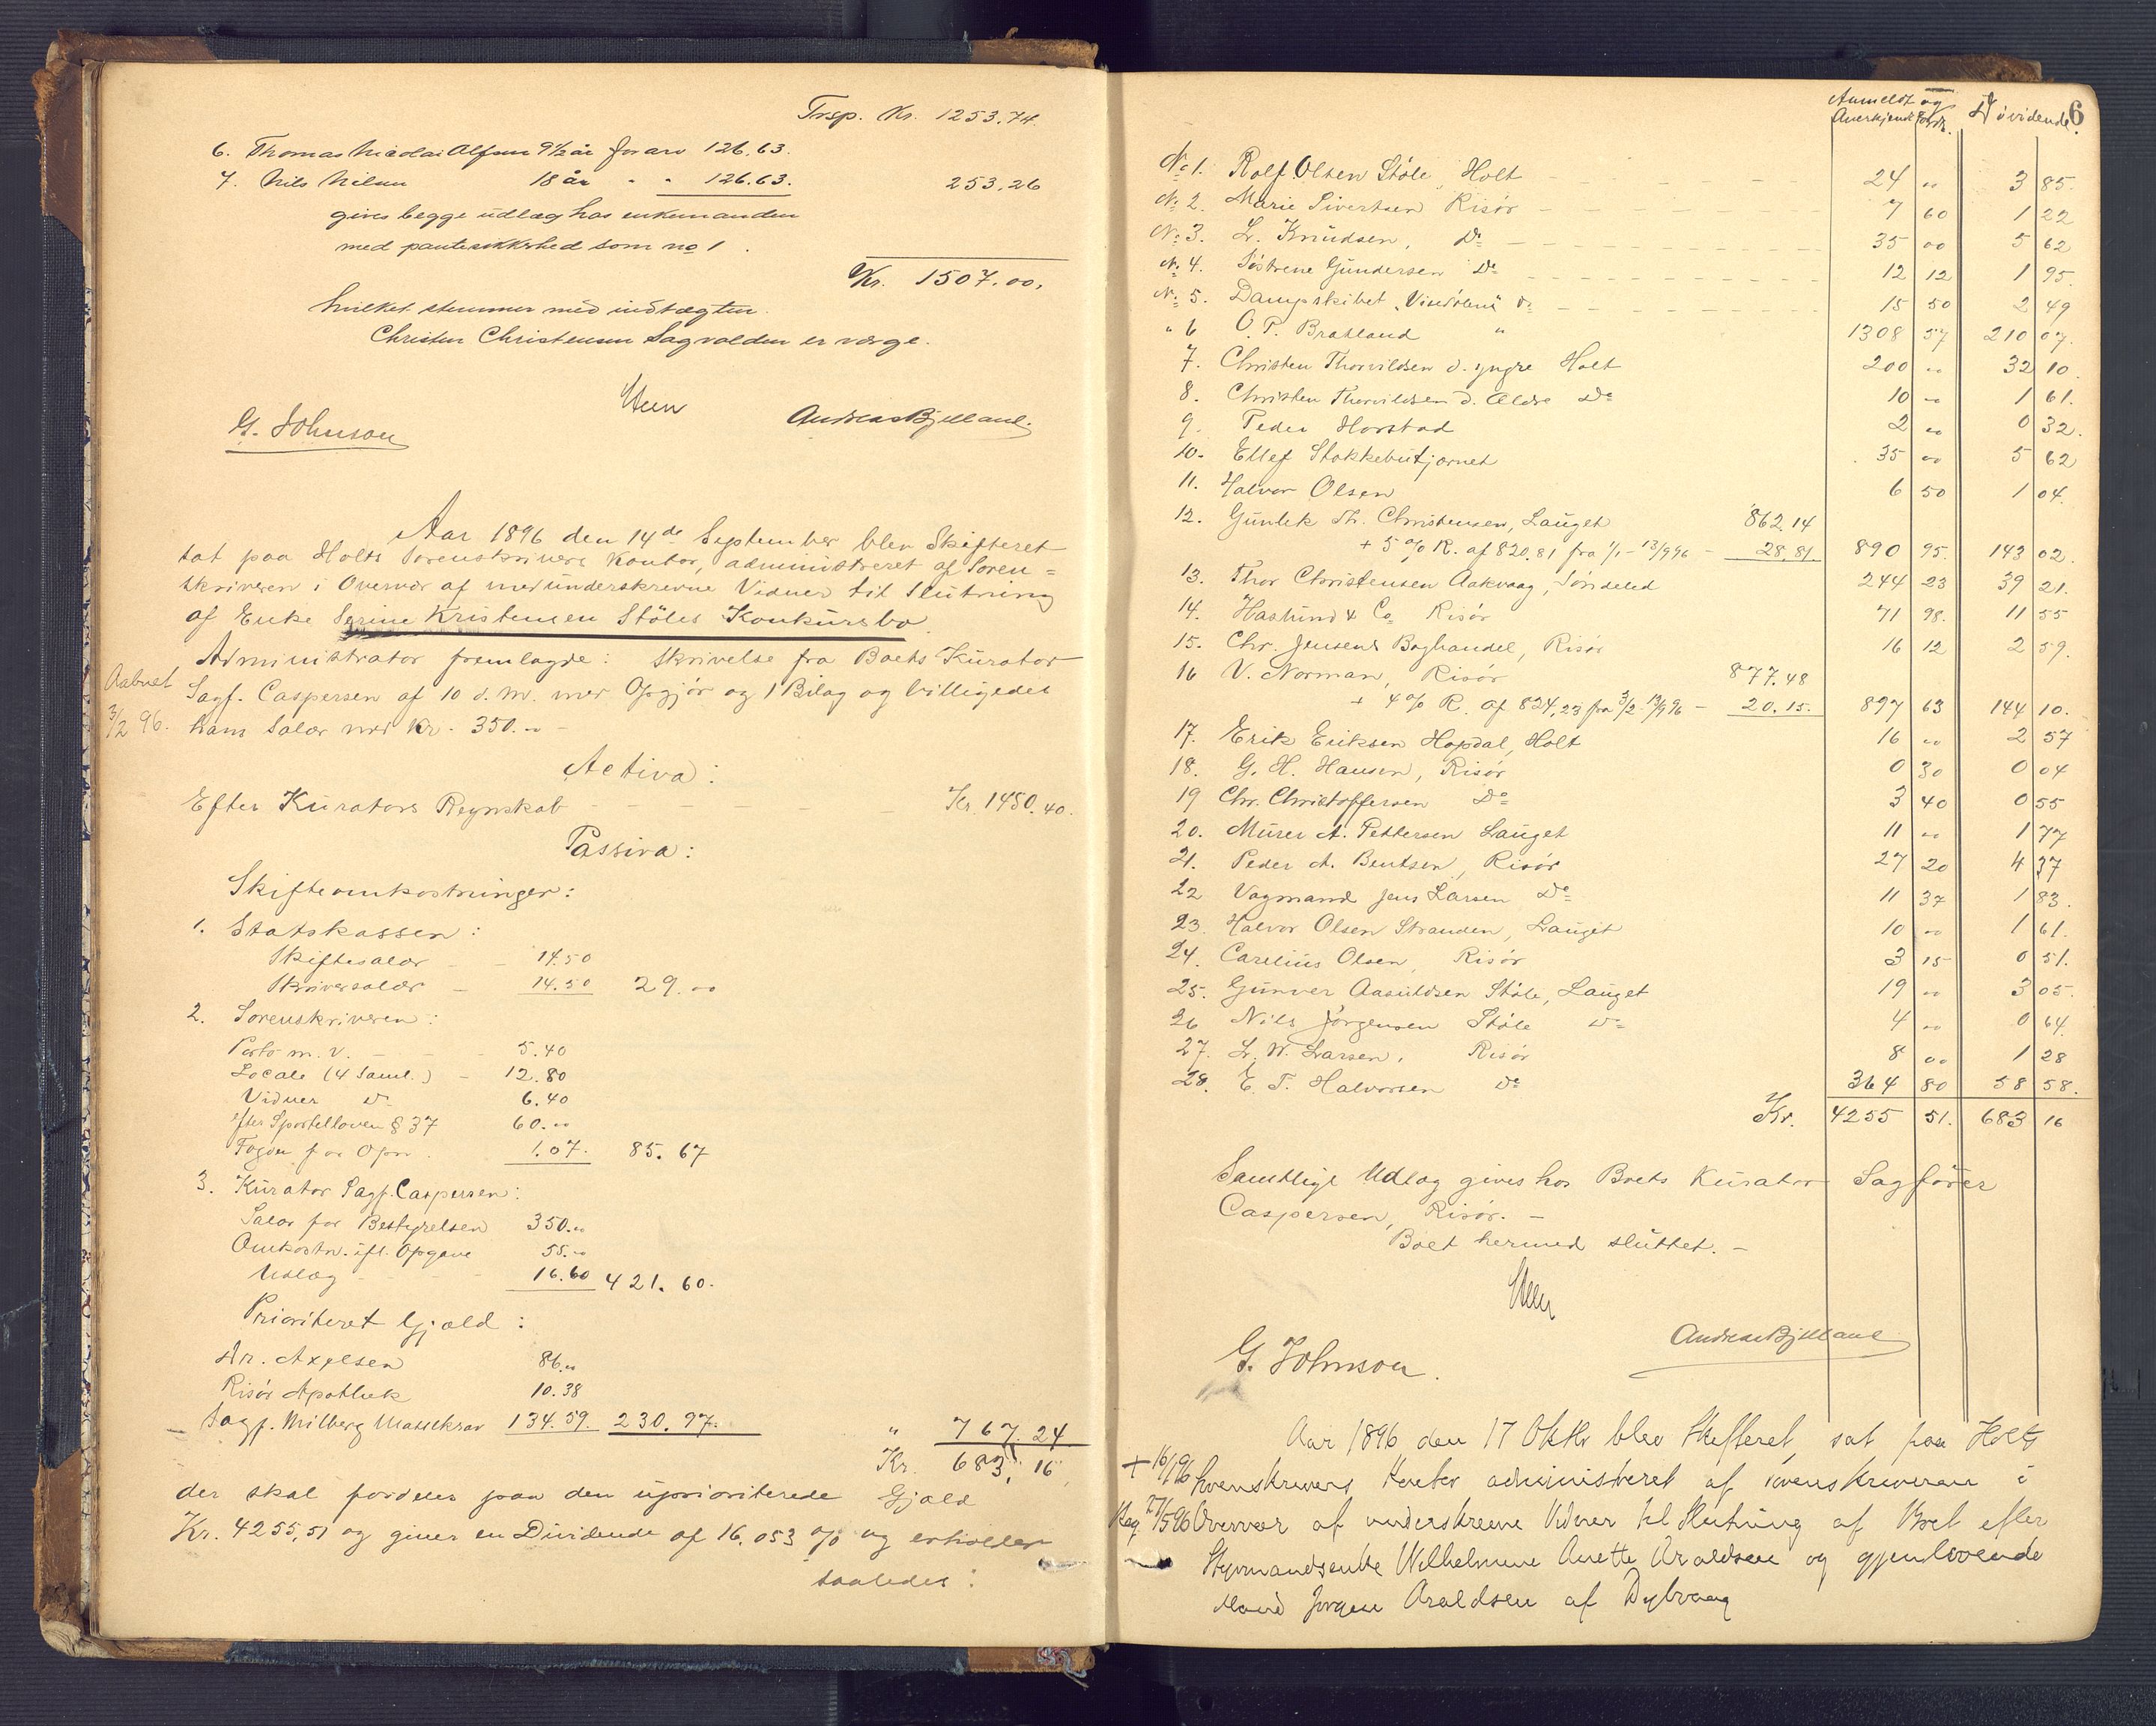 Trsp. Kr. 1253.74.
6. Thomas Nicolai Alfsen 9½ år for arv 126.63.
7. Nils Nilsen 18 år " " 126.63. 253,26
gives begge udlæg hos enkemanden
med pantesikkerhed som no 1.
Kr. 1507.00.
hvilket stemmer med indtægten.
Christen Christensen Sagvolden er værge.
G. Johnson
Andreas Bjelland.
Aar 1896 den 14de September blev Skifteret
sat paa Holts Sorenskrivers Kontor, administreret af Soren=
skriveren i Overvær af medunderskrevne Vidner til Slutning
af Enke Serine Kristensen Støles Konkursbo.
Administrator fremlagde: Skrivelse fra Boets Kurator
Aabnet
Sagf. Caspersen af 10 d. M. med Opgjør og 1 Bilag og billigedes
3/2 96.
ham Salær med Kr. 350.00 –
Activa:
Efter Kurators Regnskab – – – Kr. 1450.40.
Passiva:
Skifteomkostninger:
1. Statskassen:
Skiftesalær – 14.50
Skriversalær – 14.50 29.00
2. Sorenskriveren:
Porto m. v. – – – 5.40
Locale (4 Saml.) – 12.80
Vidner do 6.40
efter Sportelloven § 37 60.00
Fogden for Opn. 1.07. 85.67
3. Kurator Sagf. Caspersen:
Salær for Bestyrelsen 350.00
Omkostn. ifl. Opgave 55.00
Udlæg – – – 16.60 421.60.
Prioriteret Gjæld:
Dr. Axelsen 86.00
Risør Apothek 10.38
Sagf. Milberg Massekrav 134.59. 230.97. " 767.24
Kr. 683,16
der skal fordeles paa den uprioriterede Gjæld
Kr. 4255,51 og giver en Dividende af 16,053 % og erholder
saaledes:
Anmeldt og
Anerkjendt Fordr. Dividende. 6
No 1. Rolf Olsen Støle, Holt – – – 24 00 3 85.
No 2. Marie Sivertsen Risør – – – 7 60 1 22
No 3. L. Knudsen, Do – – – 35 00 5 62
No 4. Søstrene Gundersen Do – – – 12 12 1 95.
No 5. Dampskibet "Vindølen" do – – – 15 50 2 49
" 6 O. T. Bratland " 1308 57 210 07.
7. Christen Thorvildsen d. yngre Holt 200 00 32 10.
8. Christen Thorvildsen d. Ældre Do 10 00 1 61.
9. Peder Havstad 2 00 0 32.
10. Ellef Stokkebutjørnet 35 00 5 62
11. Halvor Olsen 6 50 1 04.
12. Gunlek Th. Christensen, Lauget 862.14
+ 5 % R. af 820.81 fra 1/1 – 13/9 96 – 28.81. 890 95. 143 02.
13. Thor Christensen Aakvaag, Søndeled 244 23 39 21.
14. Haslund & Co Risør 71 98. 11 55
15. Chr. Jensens Boghandel, Risør 16 12 2 59.
16 V. Norman, Risør 877.48
+ 4 % R. af 824,23 fra 3/2 – 13/9 96 – 20.15. 897 63 144 10.
17. Erik Eriksen Hopdal, Holt 16 00 2 57
18. G. H. Hansen, Risør 0 30 0 04
19 Chr. Christoffersen Do 3 40 0 55
20. Murer A. Pettersen Lauget 11 00 1 77
21. Peder A. Bentsen, Risør 27 20 4 37
22 Vognmand Jens Larsen Do 11 37 1 83.
23. Halvor Olsen Stranden, Lauget 10 00 1 61.
24. Carelius Olsen, Risør 3 15 0 51.
25. Gunver Aasuldsen Støle, Lauget 19 00 3 05.
26 Nils Jørgensen Støle Do 4 00 0 64.
27. L. W. Larsen, Risør 8 00 1 28
28. E. T. Halvorsen Do 364 80 58 58.
Kr. 4255 51. 683 16
Samtlige Udlæg gives hos Boets Kurator Sagfører
Caspersen, Risør. –
Boet hermed sluttet. –
Andreas Bjelland
G. Johnson.
Aar 1896 den 17 Oktbr blev Skifteret sat paa Holts
+ 16/1 96 Sorenskrivers Kontor administreret af Sorenskriveren i
Reg. 27/5 96 Overvær af underskrevne Vidner til Slutning af Boet efter
Styrmandsenke Wilhelmine Anette Araldsen og gjenlevende
Mand Jørgen Araldsen af Dybvaag